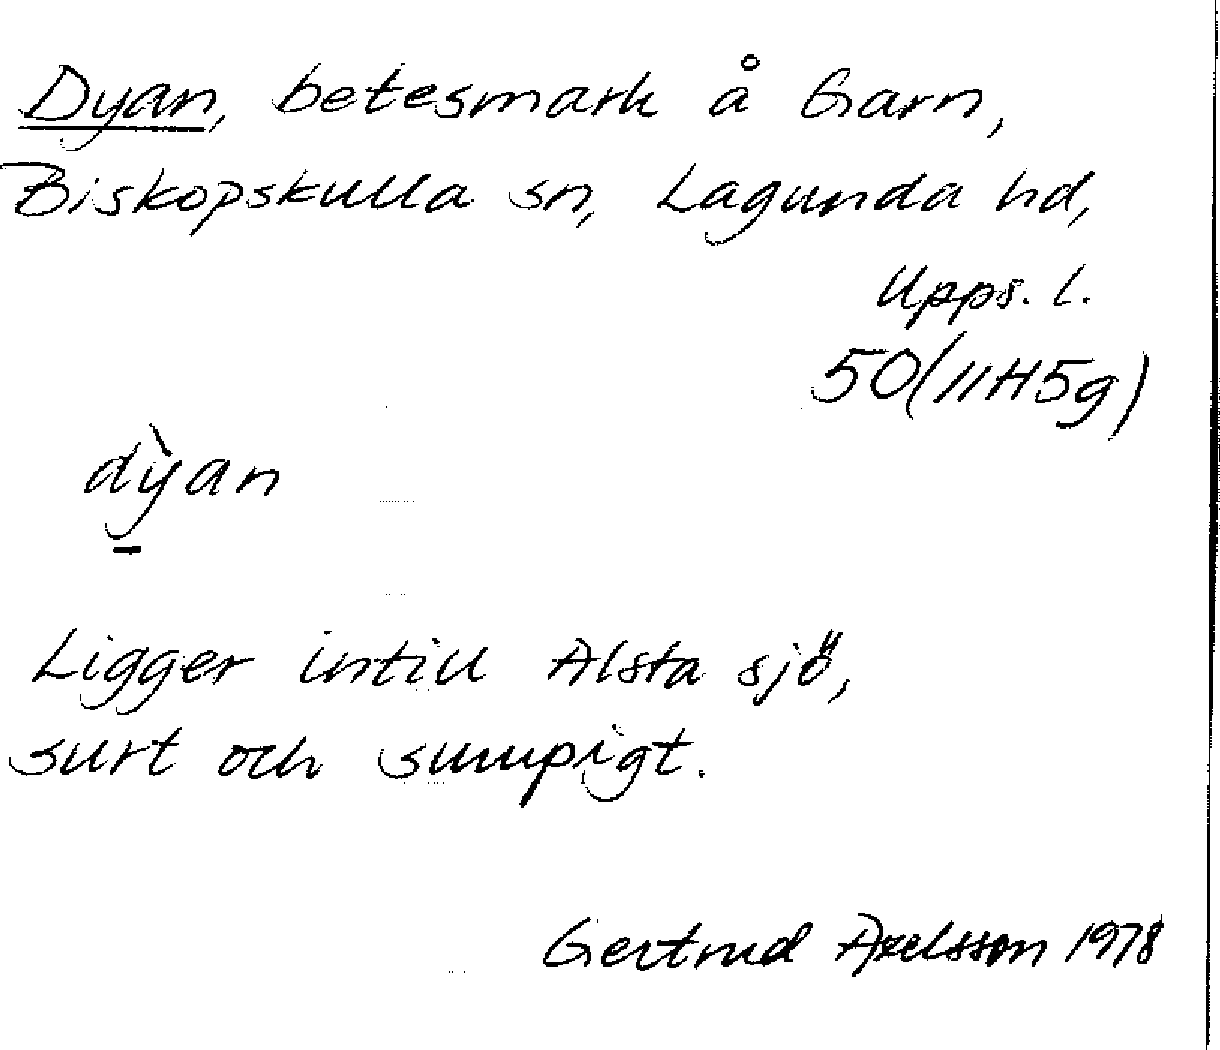 Dyan, betesmark å Garn,
Biskopskulla sn, Lagunda hd,
Upps. l.
50(11H5g)
dỳan
Ligger intill Alsta sjö,
surt och sumpigt.
Gertrud Axelsson 1978